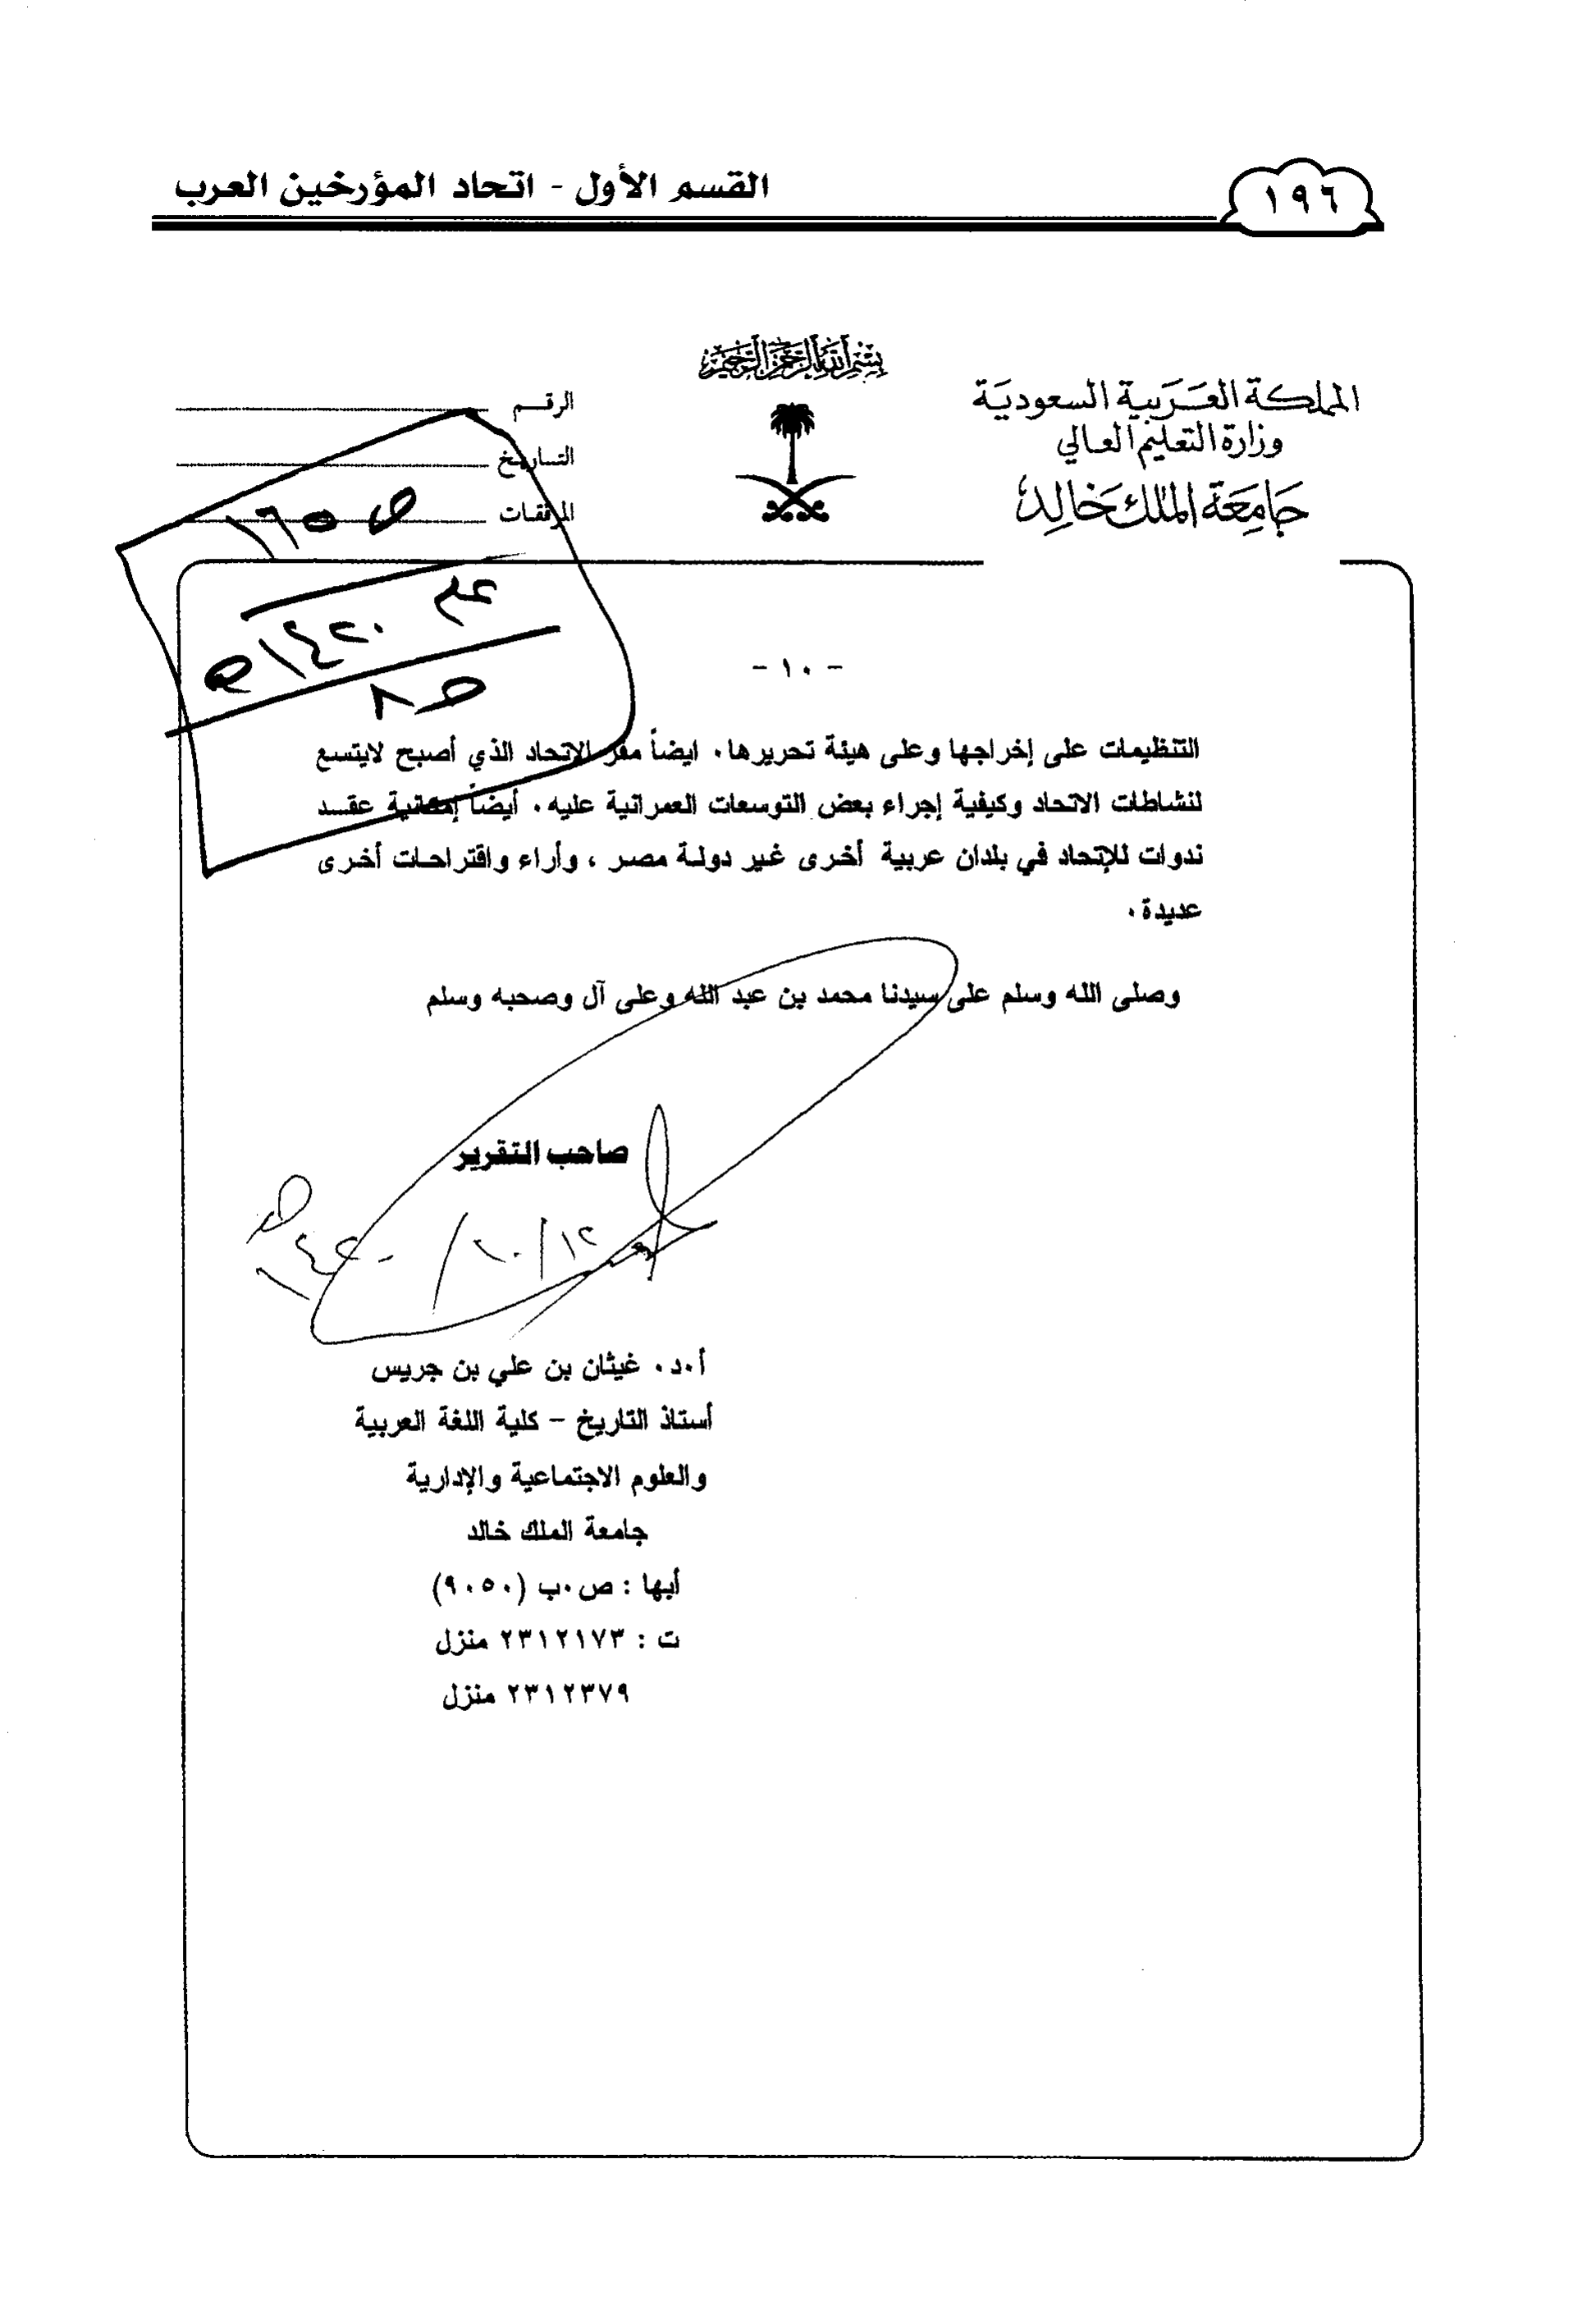 القسم الأول - اتحاد المؤرخين العرب
١٩٦
بسم الله الرحمن الرحيم
المملكة العربية السعودية
وزارة التعليم العالي
جامعة الملك خالد
الرقم
التاريخ
المرفقات
ص ١٦٥
١٤٢٠هـ
- ١٠ -
التنظيمات على إخراجها وعلى هيئة تحريرها. ايضاً مقر الإتحاد الذي أصبح لايتسع
لنشاطات الاتحاد وكيفية إجراء بعض التوسعات العمرانية عليه. أيضاً إمكانية عقد
ندوات للإتحاد في بلدان عربية أخرى غير دولة مصر ، وأراء واقتراحات أخرى
عديدة.
وصلى الله وسلم على سيدنا محمد بن عبد الله وعلى آل وصحبه وسلم
صاحب التقرير
١٢/١٠/١٤٢٠هـ
أ.د. غيثان بن علي بن جريس
أستاذ التاريخ - كلية اللغة العربية
والعلوم الاجتماعية والإدارية
جامعة الملك خالد
أبها : ص.ب (٩٠٥٠)
ت : ٢٣١٢١٧٣ منزل
٢٣١٢٣٧٩ منزل